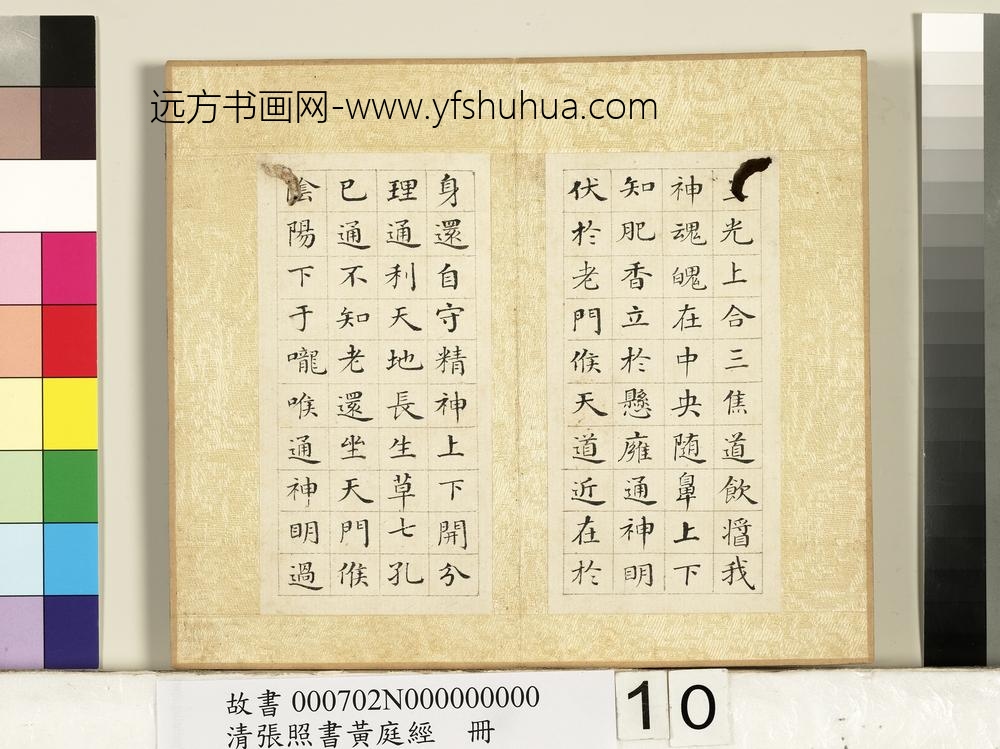 远方书画网-www.yfshuhua.com
光上合三焦道飲醬我
神魂魄在中央随鼻上下
知肥香立於懸癕通神明
伏於老門候天道近在於
身還自守精神上下開分
理通利天地長生草七孔
已通不知老還坐天門候
陰陽下于嚨喉通神明過
故書 000702N000000000
清張照書黃庭經 冊
10